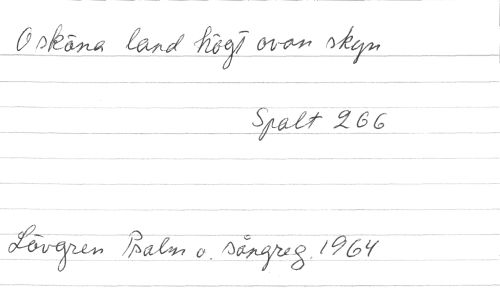 O sköna land högt ovan skyn
Spalt 266
Lövgren Psalm o. sångreg. 1964